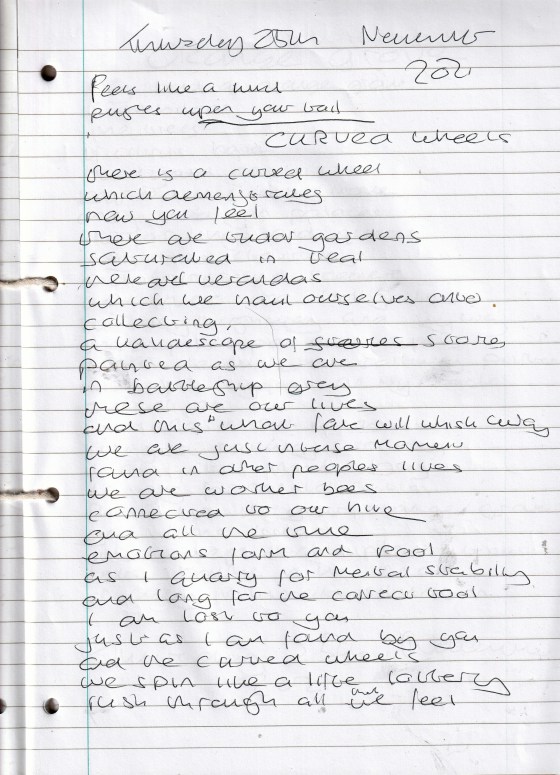 Thursday 25th November
2021
Feels like a wind
pushes upon your tail
CURVED wheels
there is a curved wheel
which demonstrates
how you feel
there are tudor gardens
saturated in teal
there are verandas
which we haul ourselves onto
collecting,
a landscape of stares
painted as we are
in battleship grey
these are our lives
and this what fate will whisk away
we are just intense moments
found in other peoples lives
we are worker bees
connected to our hive
and all the time
emotions form and pool
as I quarry for mental stability
and long for the correct tool
I am lost to you
just as I am found by you
and the curved wheels
we spin like a life lottery
rush through all that we feel